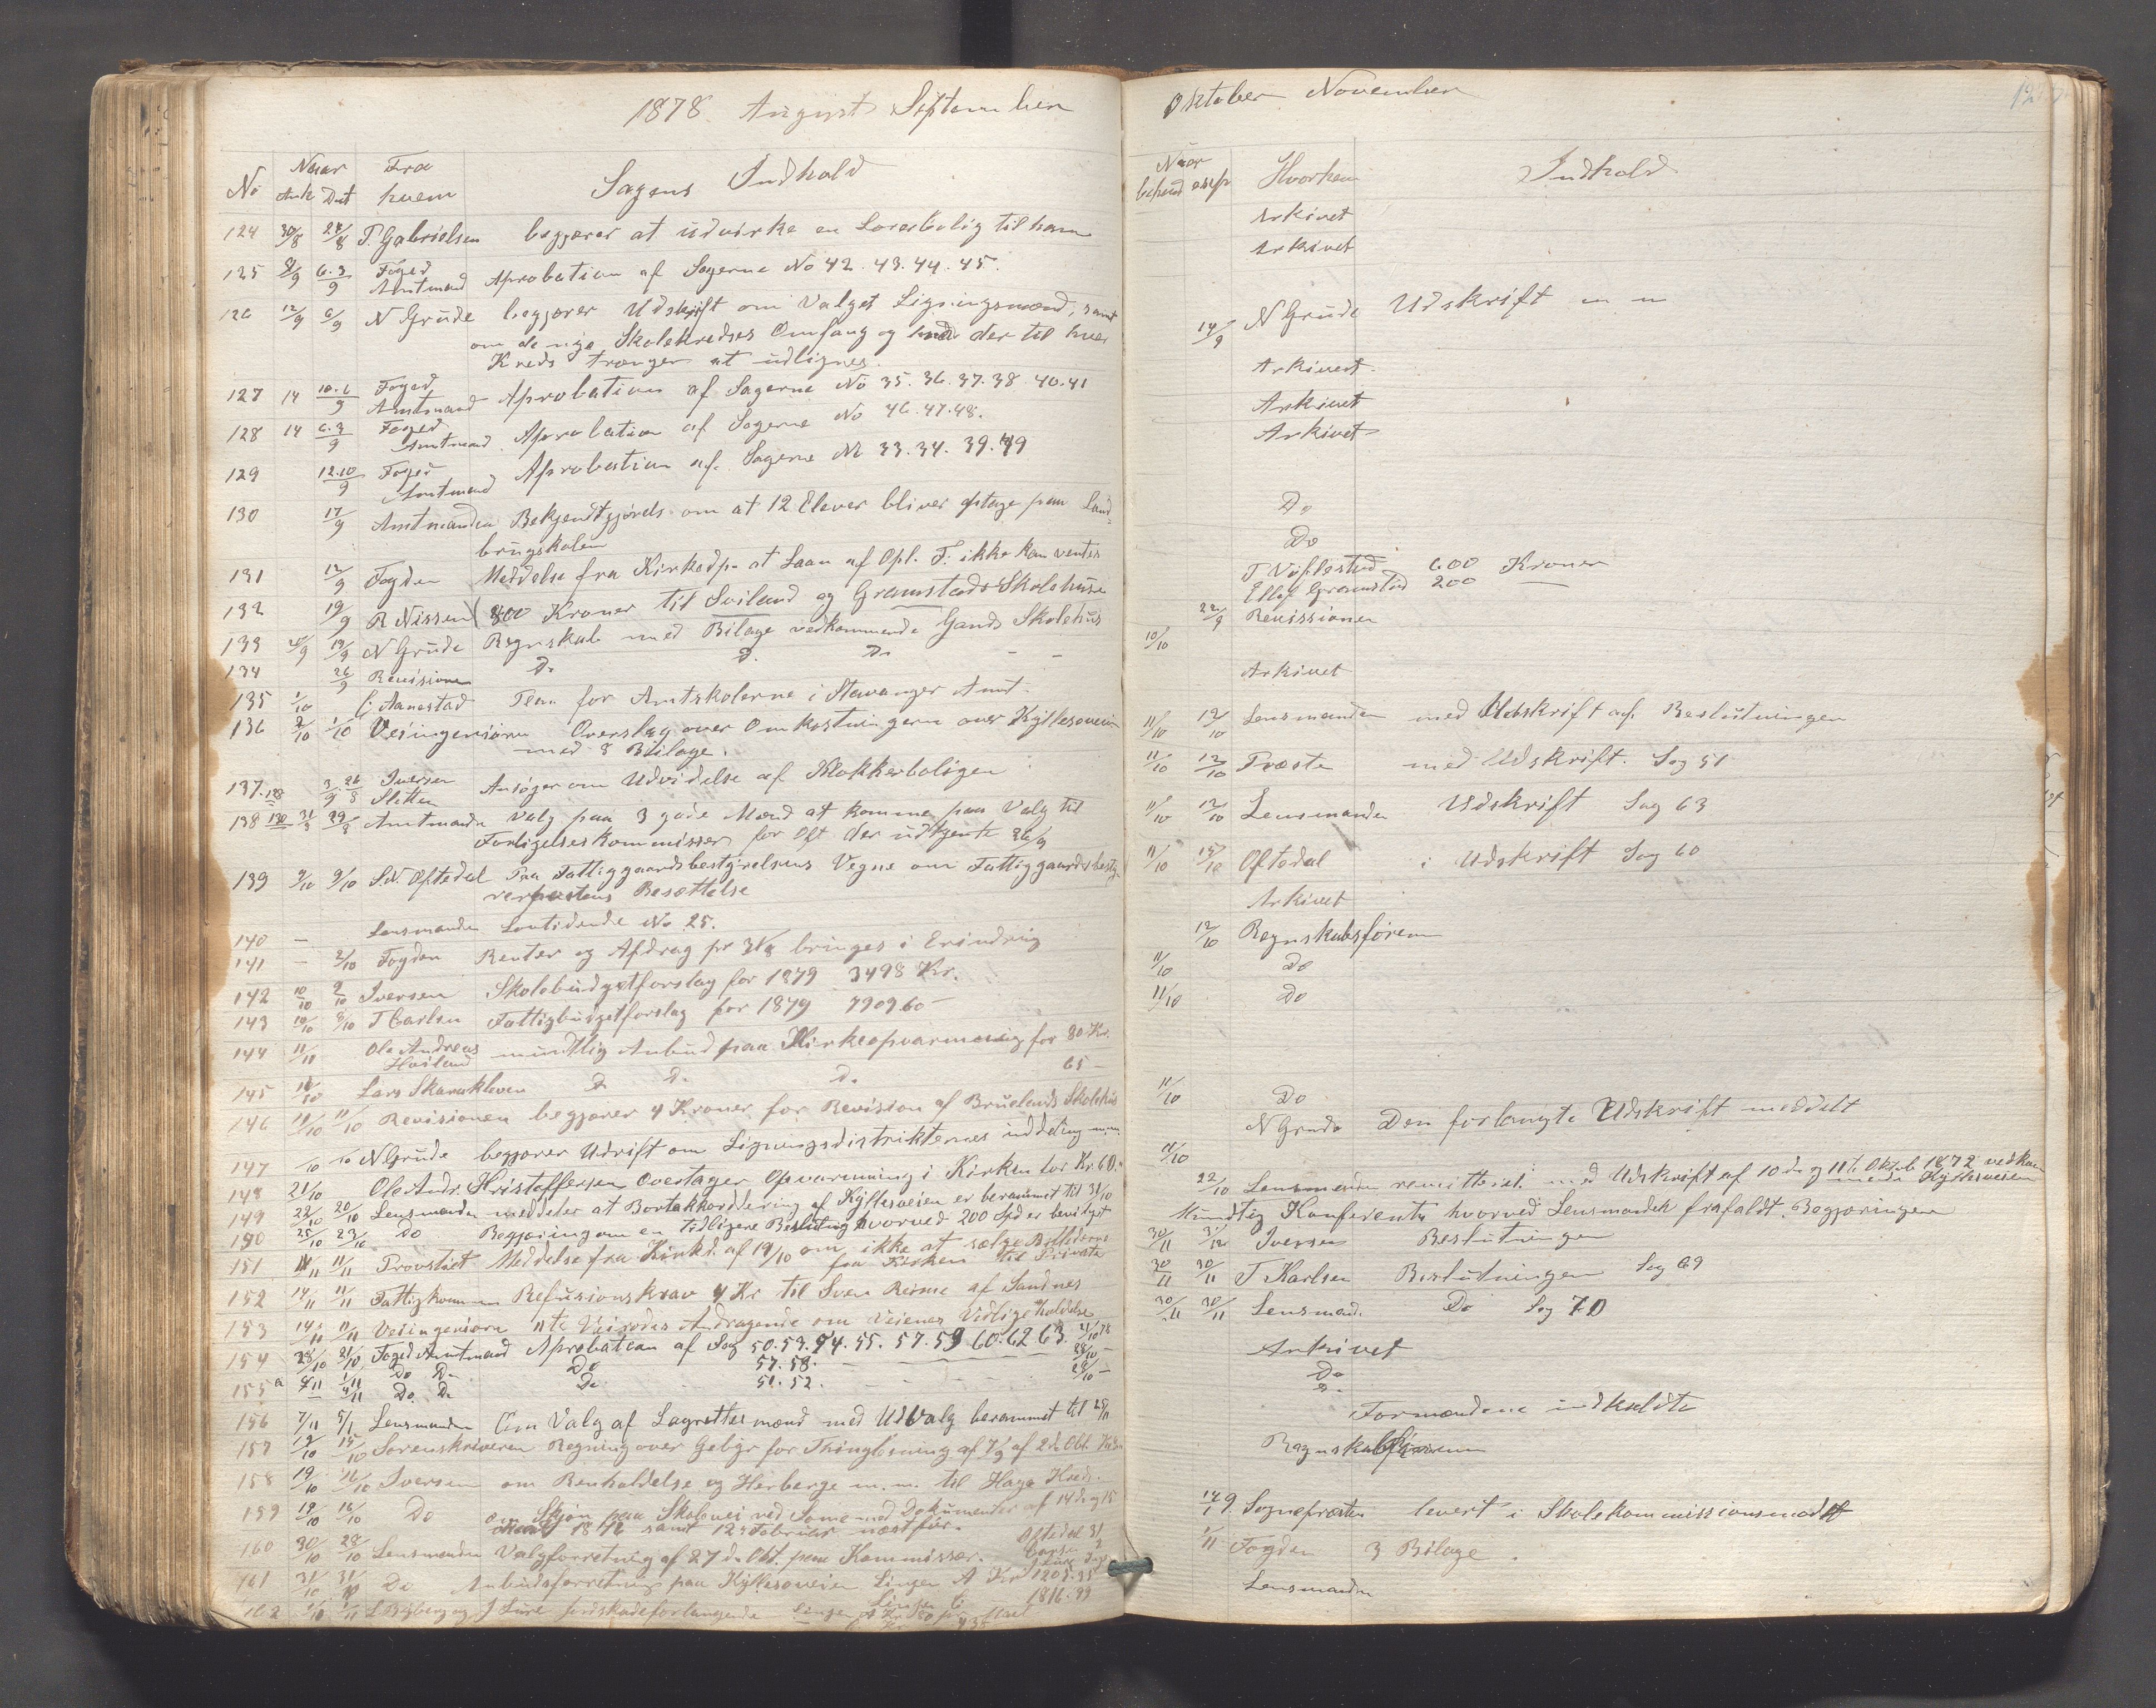 1878. August September
No
Naar
Ank Dat
Fra
hvem
Sagens Indhold
124 30/8 24/8 T. Gabrielsen begjærer at udvirke en Lærerbolig til ham
125 9/9 6.3/9 Foged Amtmand Aprobation af Sagerne No 42. 43. 44. 45.
126 12/9 6/9 N Grude begjærer Udskrift om Valget Ligningsmænd, samt
om de nye Skolekredses Omfang og hvad der til hver
Kreds trænger at udlignes.
127 14 10.6/9 Foged Amtmand Aprobation af Sagerne No 35. 36. 37. 38 40. 41
128 14 6.3/9 Foged Amtmand Aprobation af Sagerne No 46. 47. 48.
129 12.10/9 Foged Amtmand Aprobation af Sagerne No 33. 34. 39. 49
130 17/9 Amtmanden Bekjendtgjørels om at 12 Elever bliver optage paa Land-
brugskolen
131 12/9 Fogden Meddelse fra Kirkedp. at Laan af Opl. F. ikke kan ventes
132 19/9 R Nissen 800 Kroner til Soiland og Gramstads Skolehuse
133 19/9 N Grude Regnskab med Bilage vedkommende Gands Skolehus
134 26/9 Revisionen Do D. Do
135 1/10 C. Aanestad Plan for Amtskolerne i Stavanger Amt.
136 2/10 1/10 Veiingeniøren Overslag over Omkostningerne over Kyllesveien
med 8 Bilage.
137. 128 3/9 26/8 Iversen Sletten Ansøger om Udvidelse af Klokkerboligen
138 130 31/8 29/8 Amtmanden Valg paa 3 gode Mænd at komme paa Valg til
Forligelseskommissær for Oft der udtjente 26/9
139 9/10 9/10 S. N. Oftedal Paa Fattiggaardsbestyrelsens Vegne om Fattiggaardsbesty-
rerpostens Besættelse
140 — Lensmanden Lovtidende No 25.
141 — 2/10 Fogden Renter og Afdrag pr bringes i Erindring
142 10/10 9/10 Iversen Skolebudgetforslag for 1879 3498 Kr.
143 10/10 8/10 T Carlsen Fattigbudgetforslag for 1879 7909 60 —
144 11/11 Ole Andreas Høiland mundtlig Anbud paa Kirkeopvarmning for 80 Kr.
145 11/10 Lars Skarakleven D. D. D. 65 —
146 11/10 11/10 Revisionen begjærer 4 Kroner for Revision af Bruelands Skolehus
147 /10 /10 N Grude begjærer Udrift om Ligningsdistrikternes inddeling m.m.
148 21/10 Ole Andr. Kristoffersen Overtager Opvarmning i Kirken for Kr. 60.
149 22/10 20/10 Lensmanden meddeler at Bortakkordering af Kyllesveien er berammet til 31/10
150 25/10 23/10 Do Begjæring om en tidligere Beslutning hvorved 200 Spd er bevilget
151 11/11 11/11 Provstiet Meddelse fra Kirkd. af 19/10 om ikke at sælge Billederne
fra Kirken til Private
152 14/11 11/11 Fattigkommen Refusionskrav 4 Kr til Sven Reime af Sandnes
153 14/11 11/11 Veiingeniøren 11te Veirodes Andragende om Veienes Vedligeholdelse
154 28/10 21/10 Foged Amtmand Aprobation af Sag 50. 53. 54. 55. 57. 59 60. 62 63. 21/10 78
Do D. Do 57. 58. 28/10 —
155 a Do. D. Do 51. 52. 29/10 —
156 7/11 5/11 Lensmanden Om Valg af Lagrettesmænd med Udvalg berammet til 25/11
157 19/10 15/10 Sorenskriveren Regning over Gebyr for Thinglæsning af 7/9 af 2 de Obl.
158 19/10 16/10 Iversen om Renholdelse og Herberge m.m. til Hage Kreds.
159 19/10 16/10 Do om Skjøn paa Skolevei ved Some med Dokumenter af 14 de og 15
samt 12 Februar næstfør.
160 30/10 28/10 Lensmanden Valgforretning af 27 de Okt. paa Kommissær. Oftedal 31
161 31/10 31/10 Do Anbudsforretning paa Kyllesveien Linjen A Kr 1205.35
Linjen C 1816.99
162 L Byberg og J Lure
Oktober November
12
Naar
behand exsp
Hvorhen
Indhold
Arkivet
Arkivet
14/9 N Grude Udskrift
Arkivert.
Arkivet
Arkivet
Do
Do
T Vøflestad 600 Kroner
Ellef Gramstad 200 —
22/9 Revissionen
10/10
Arkivet
11/10 12/10 Lensmanden med Udskrift af Beslutningen
11/10 12/10 Præsten med Udskrift. Sag 51
11/10 12/10 Lensmanden Udskrift Sag 63
11/10 15/10 Oftedal i Udskrift Sag 60
Arkivet
12/10 Regnskabsføreren
11/10 Do
11/10 Do
11/10 Do
N Grude Den forlangte Udskrift meddelt
11/10
22/10 Lensmanden remitteret med Udskrift af 10 de og 11te Oktob 1872 vedkom-
mende Kyllesveien
Mundtlig Konferents hvorved Lensmanden frafaldt Begjæringen
30/11 3/12 Iversen Beslutningen
30/11 30/11 T Karlsen Beslutningen Sag 69
30/11 30/11 Lensmand. Do Sag 70
Arkivet
Do
D.
Formændene indkaldte
Regnskabsføreren
Sognepræsten levert i Skolekommissionsmødet
1/11 Fogden 3 Bilage.
Lensmanden